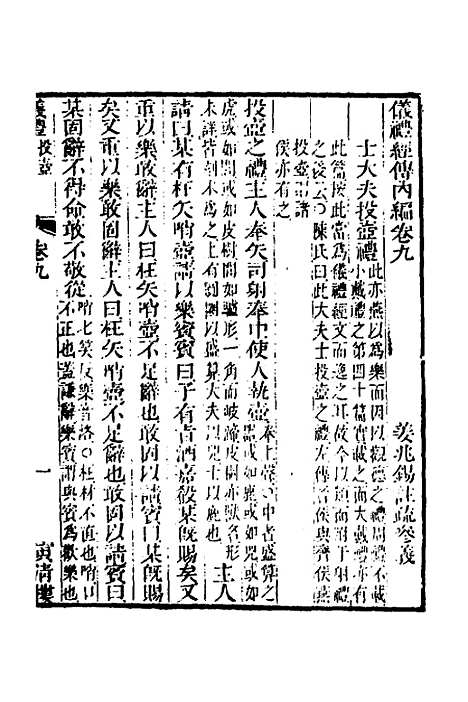 儀禮經傳內編卷九
姜兆錫註疏參義
士大夫投壺禮此亦燕以為樂而因以觀德之禮周禮不載
小戴禮之第四十篇實載之而大戴禮亦有
此篇按此當為儀禮經文而逸之耳故今以逅附于射禮
之後云○陳氏曰此大夫士投壺之禮左傳晉侯與齊侯燕
投壺則諸
侯亦有之
投壺之禮主人奉矢司射奉中使人執壺奉上聲○中者盛算之
器或如鹿或如兕或如
虎或如閭閭如驢形一角而岐蹄皮樹亦獸名形
未詳皆刻木為之上有圓圈以盛算大夫以兕士以鹿也
主人
請曰某有枉矢哨壺請以樂賓賓曰子有旨酒嘉殽某既賜矣又
重以樂敢辭主人曰枉矢哨壺不足辭也敢固以請賓曰某既賜
矣又重以樂敢固辭主人曰枉矢哨壺不足辭也敢固以請賓曰
某固辭不得命敢不敬從哨七笑反樂音洛○枉材不直也哨口
不正也蓋謙辭樂賓謂與賓為歡樂也
儀禮投壺
卷九
一
寅清樓